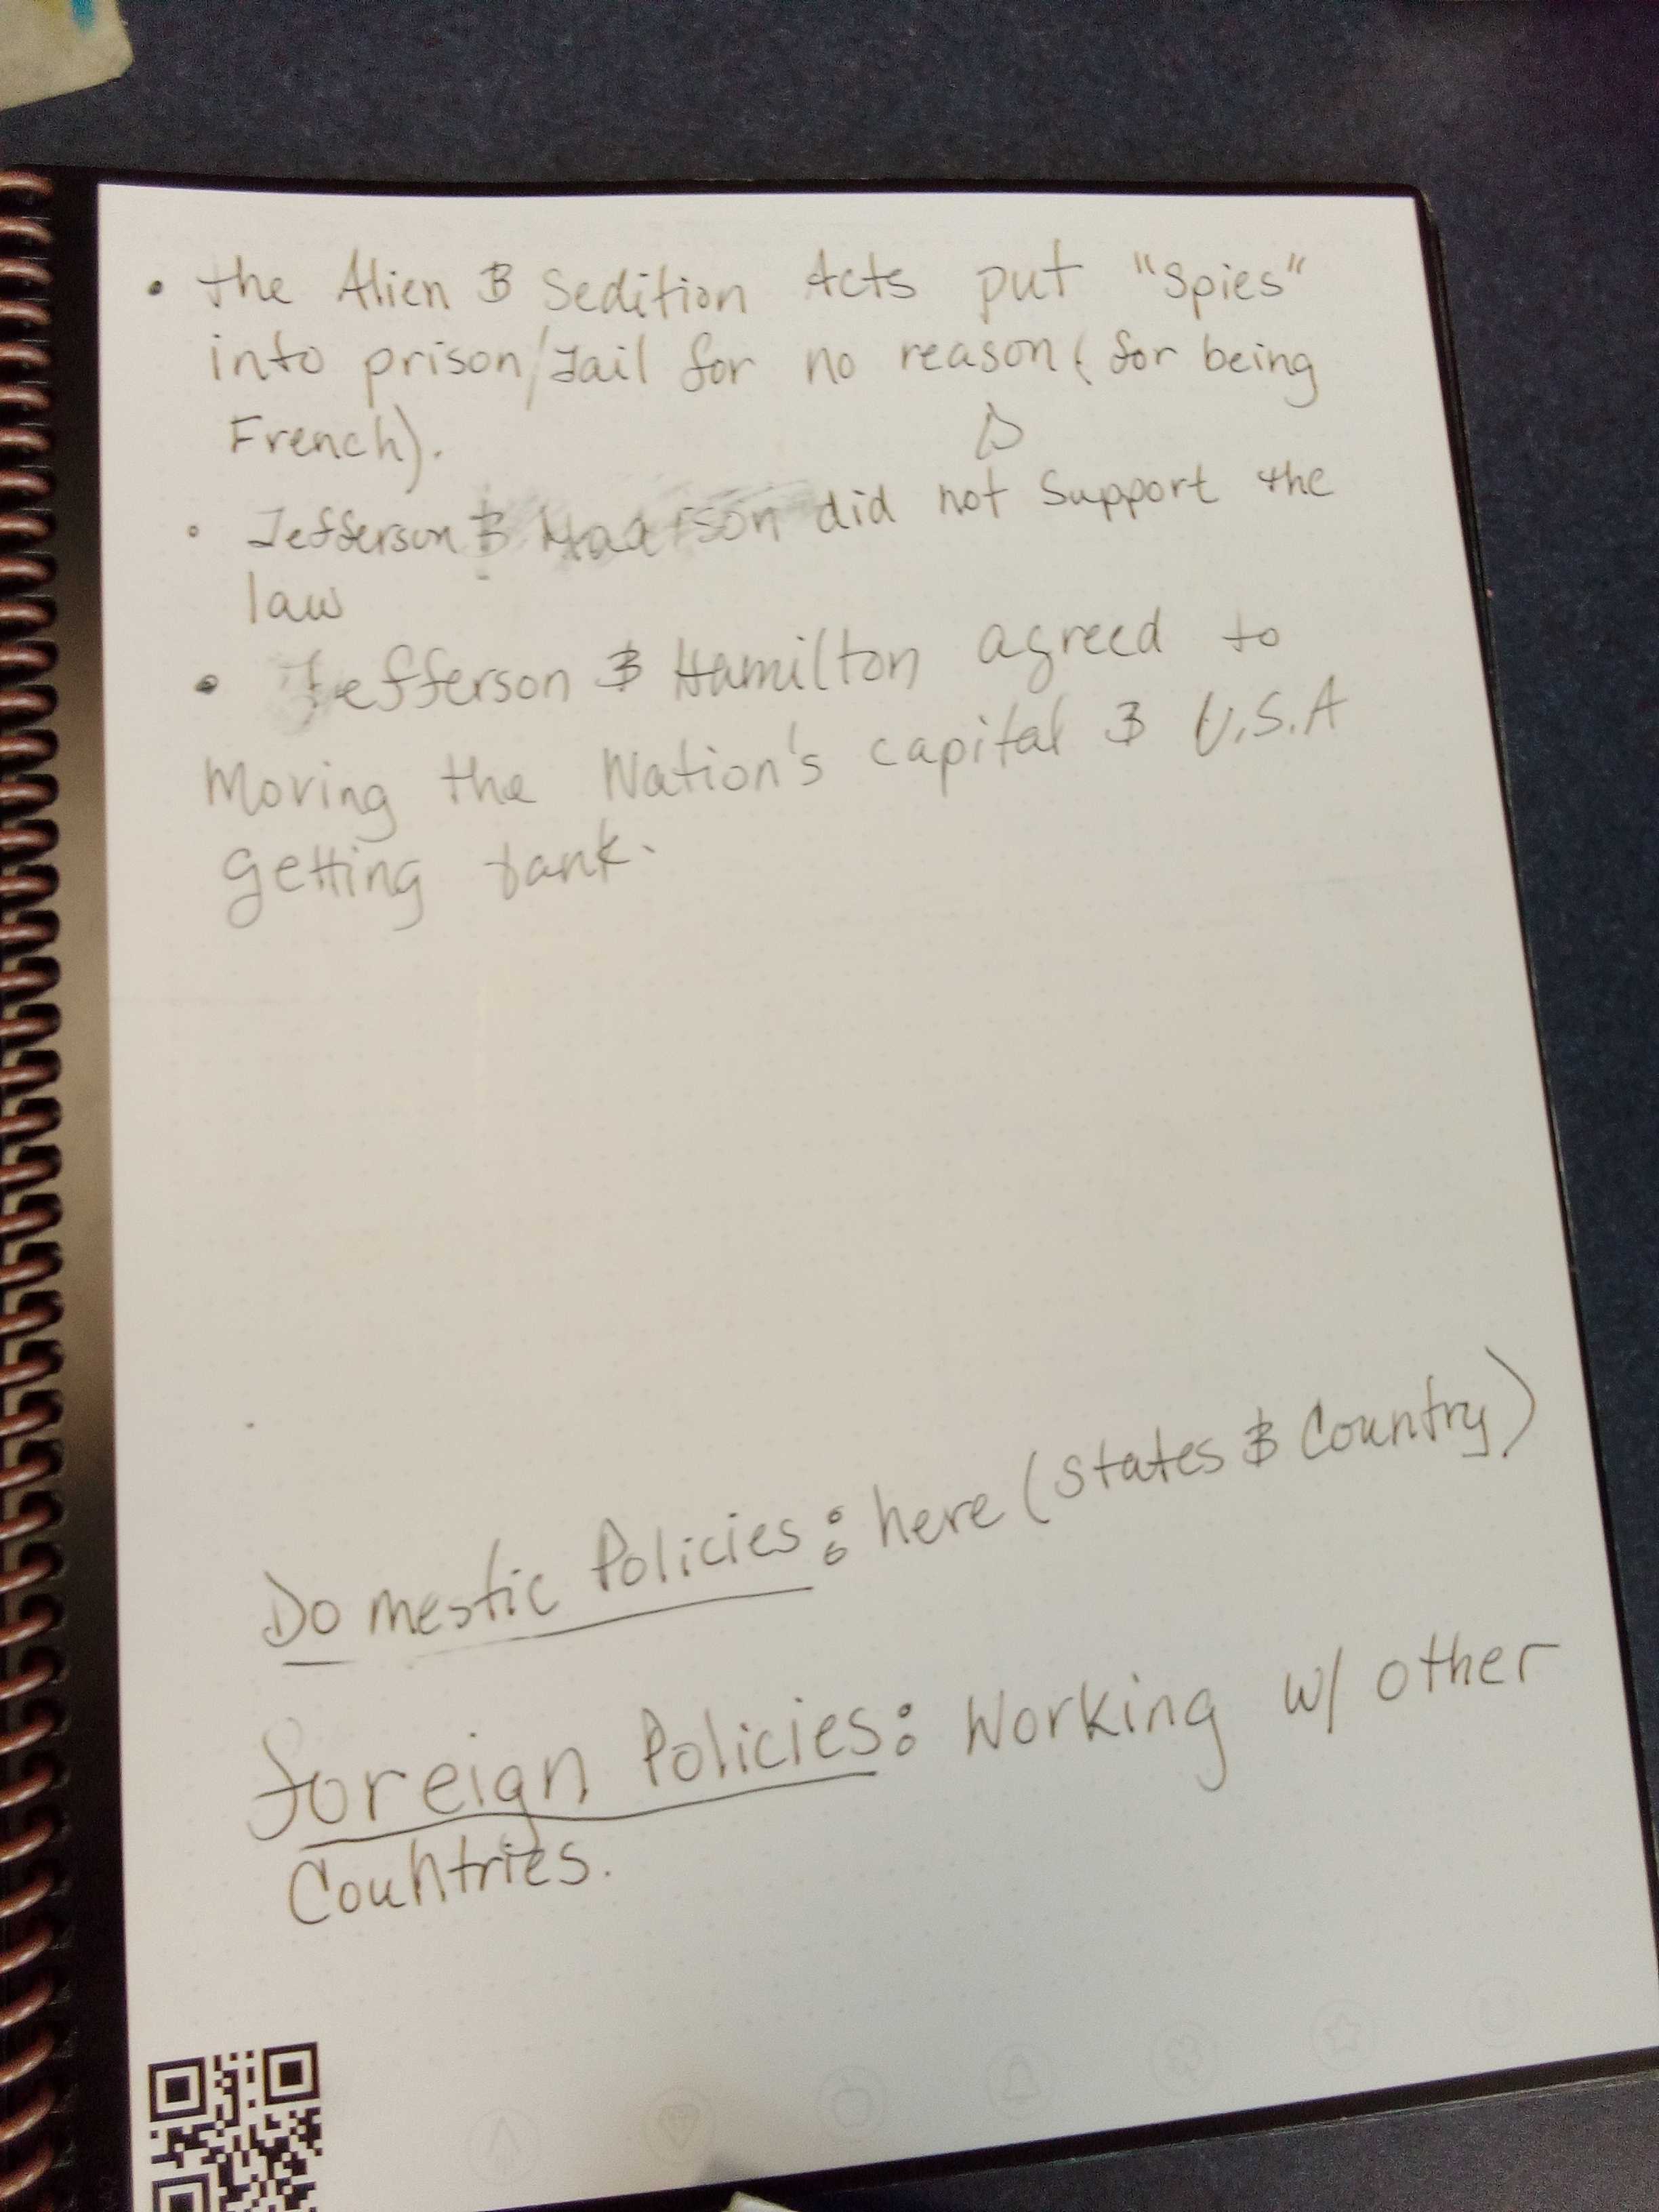 • the Alien & Sedition Acts put "Spies"
into prison/Jail for no reason (for being
French).
◦ Jefferson & did not Support the
law
• Jefferson & Hamilton agreed to
Moving the Nation's capital & U.S.A
getting bank.
Domestic Policies: here (States & Country)
foreign Policies: Working w/ other
Countries.